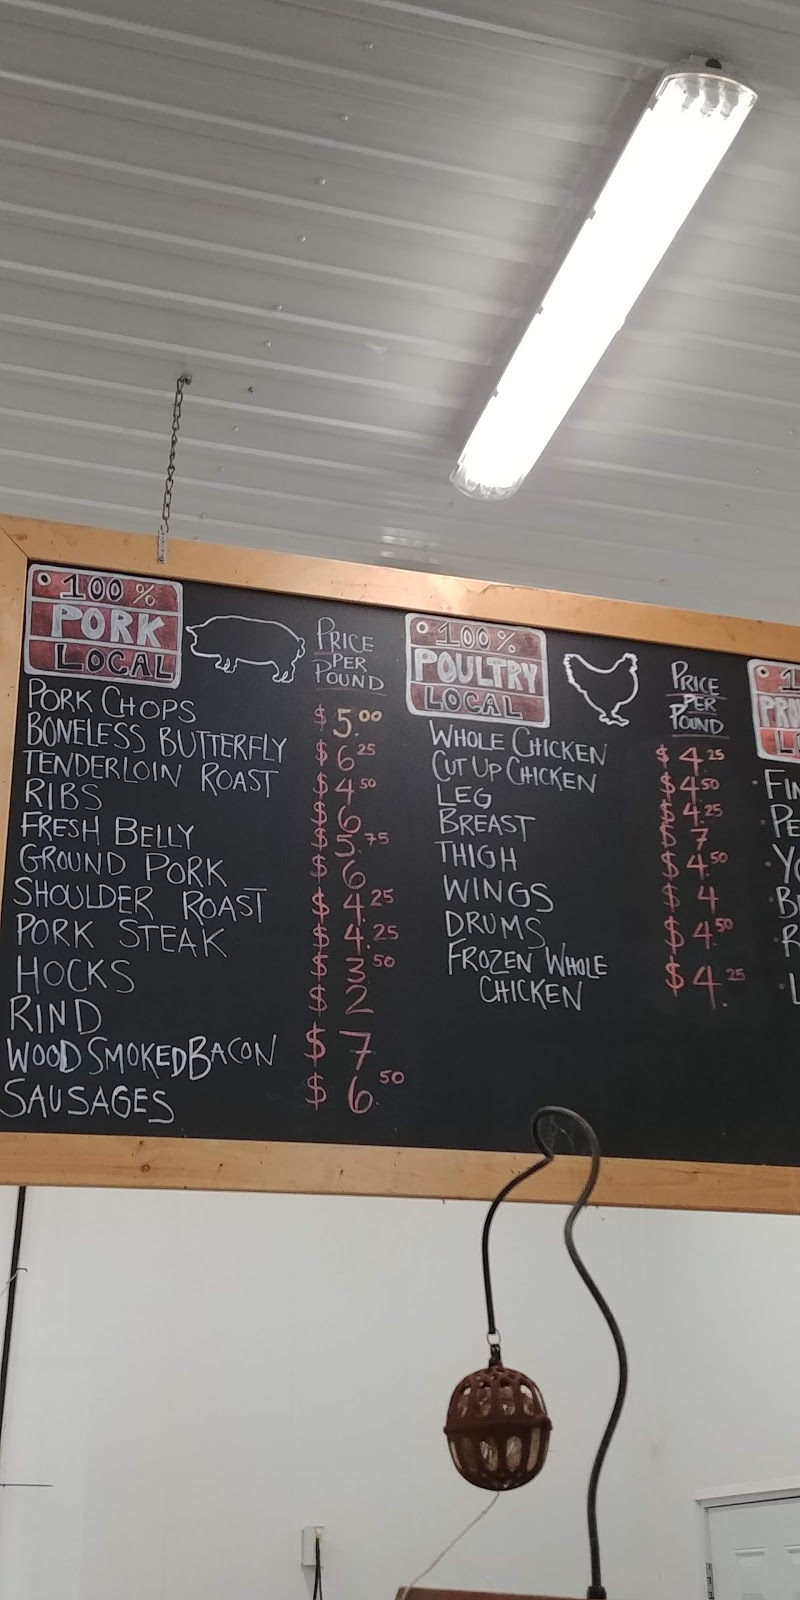 100%
PORK
LOCAL
PRICE
PER
POUND
PORK CHOPS $5.00
BONELESS BUTTERFLY $6.25
TENDERLOIN ROAST $4.50
RIBS $6
FRESH BELLY $5.75
GROUND PORK $6
SHOULDER ROAST $4.25
PORK STEAK $4.25
HOCKS $3.50
RIND $2
WOOD SMOKED BACON $7
SAUSAGES $6.50
100%
POULTRY
LOCAL
PRICE
PER
POUND
WHOLE CHICKEN $4.25
CUT UP CHICKEN $4.50
LEG $4.25
BREAST $7
THIGH $4.50
WINGS $4
DRUMS $4.50
FROZEN WHOLE
CHICKEN $4.25